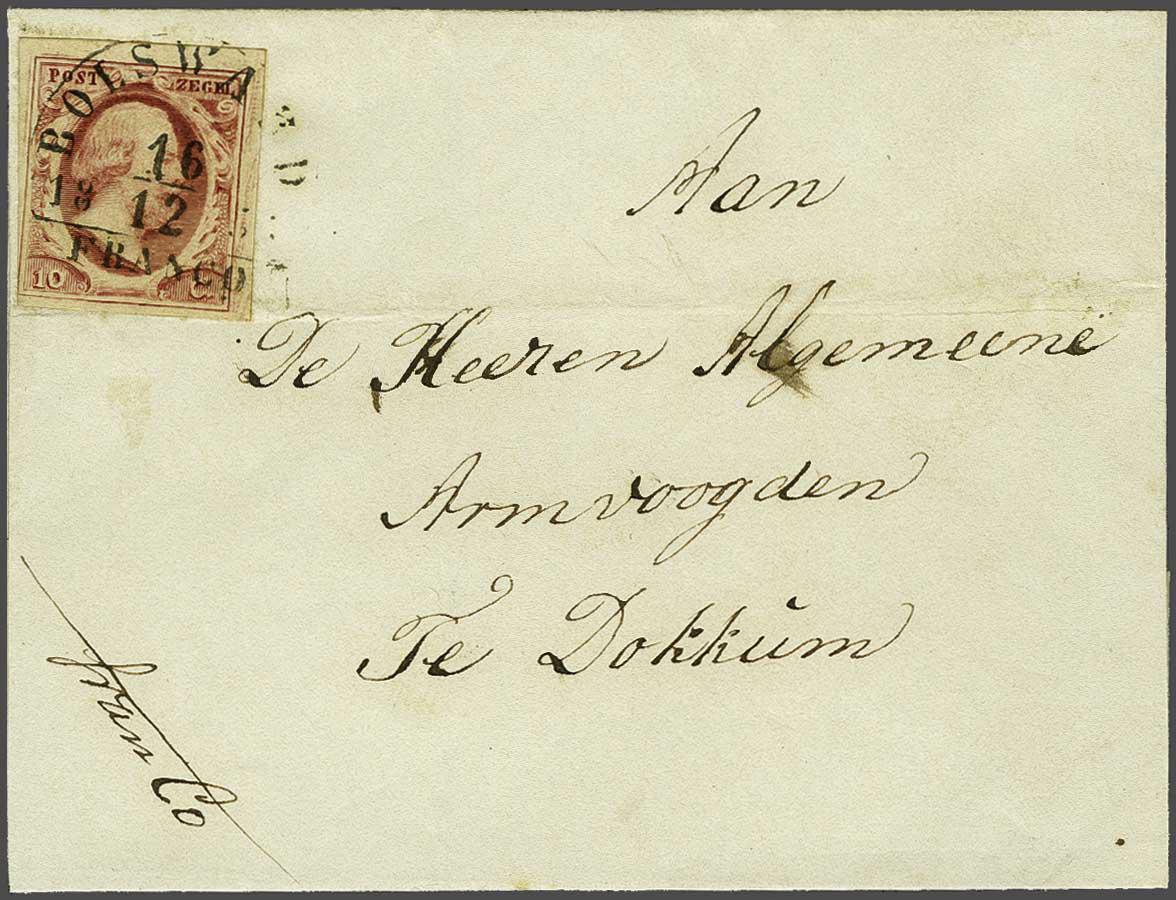 POST ZEGEL
BOLSWA
16
18 12
FRANCO
10 C.
Aan
De Heeren Algemeene
Armvoogden
Te Dokkum
franCo